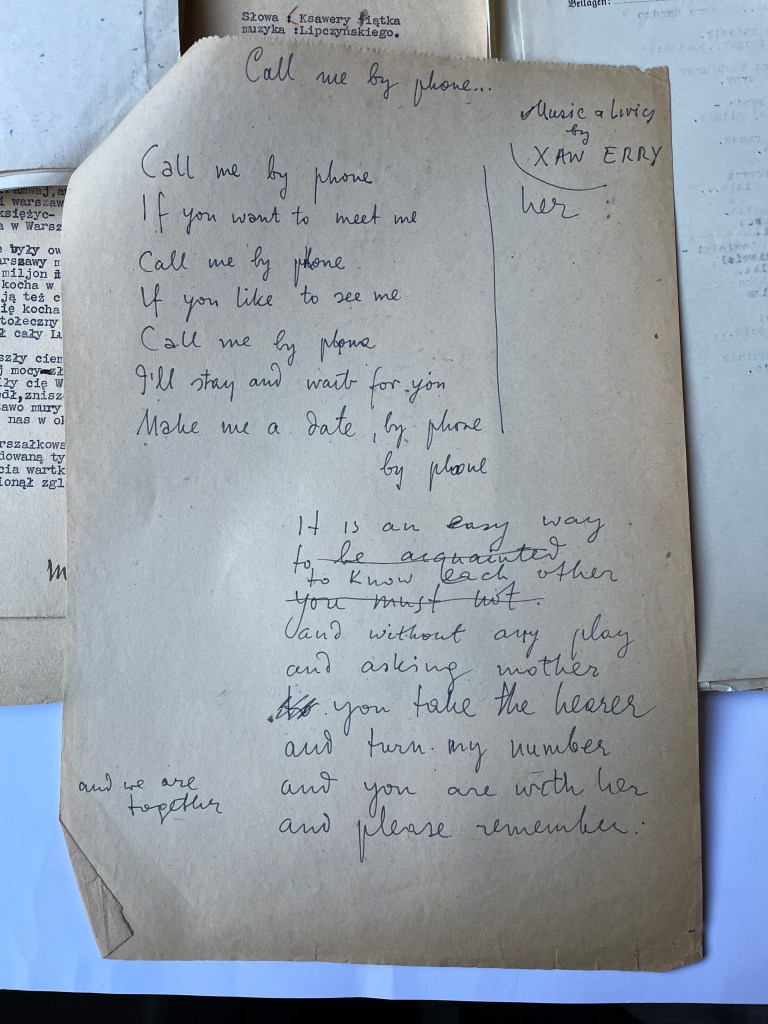 Słowa : Ksawery Piątka
muzyka :Lipczyńskiego.
Call me by phone...
Music & Lyrics
by
XAW ERRY
Call me by phone
If you want to meet me
her
Call me by phone
If you like to see me
Call me by phone
I'll stay and wait for you
Make me a date, by phone
by phone
It is an easy way
to be acquainted
to know each other
you must not.
and without any play
and asking mother
you take the hearer
and turn my number
and we are
together
and you are with her
and please remember:
Beilagen:
i warszaw
księżyc-
a w Warsz
e były ow
arszawy m
miljon
kocha w
ją też c
ię kocha
tołeczny
ł cały Lu
szły ciem
j mocy zł
iły cię W
edł,znisz
zawo mury
nas w ok
rszałkows
dowaną ty
cia wartk
ionął zgl